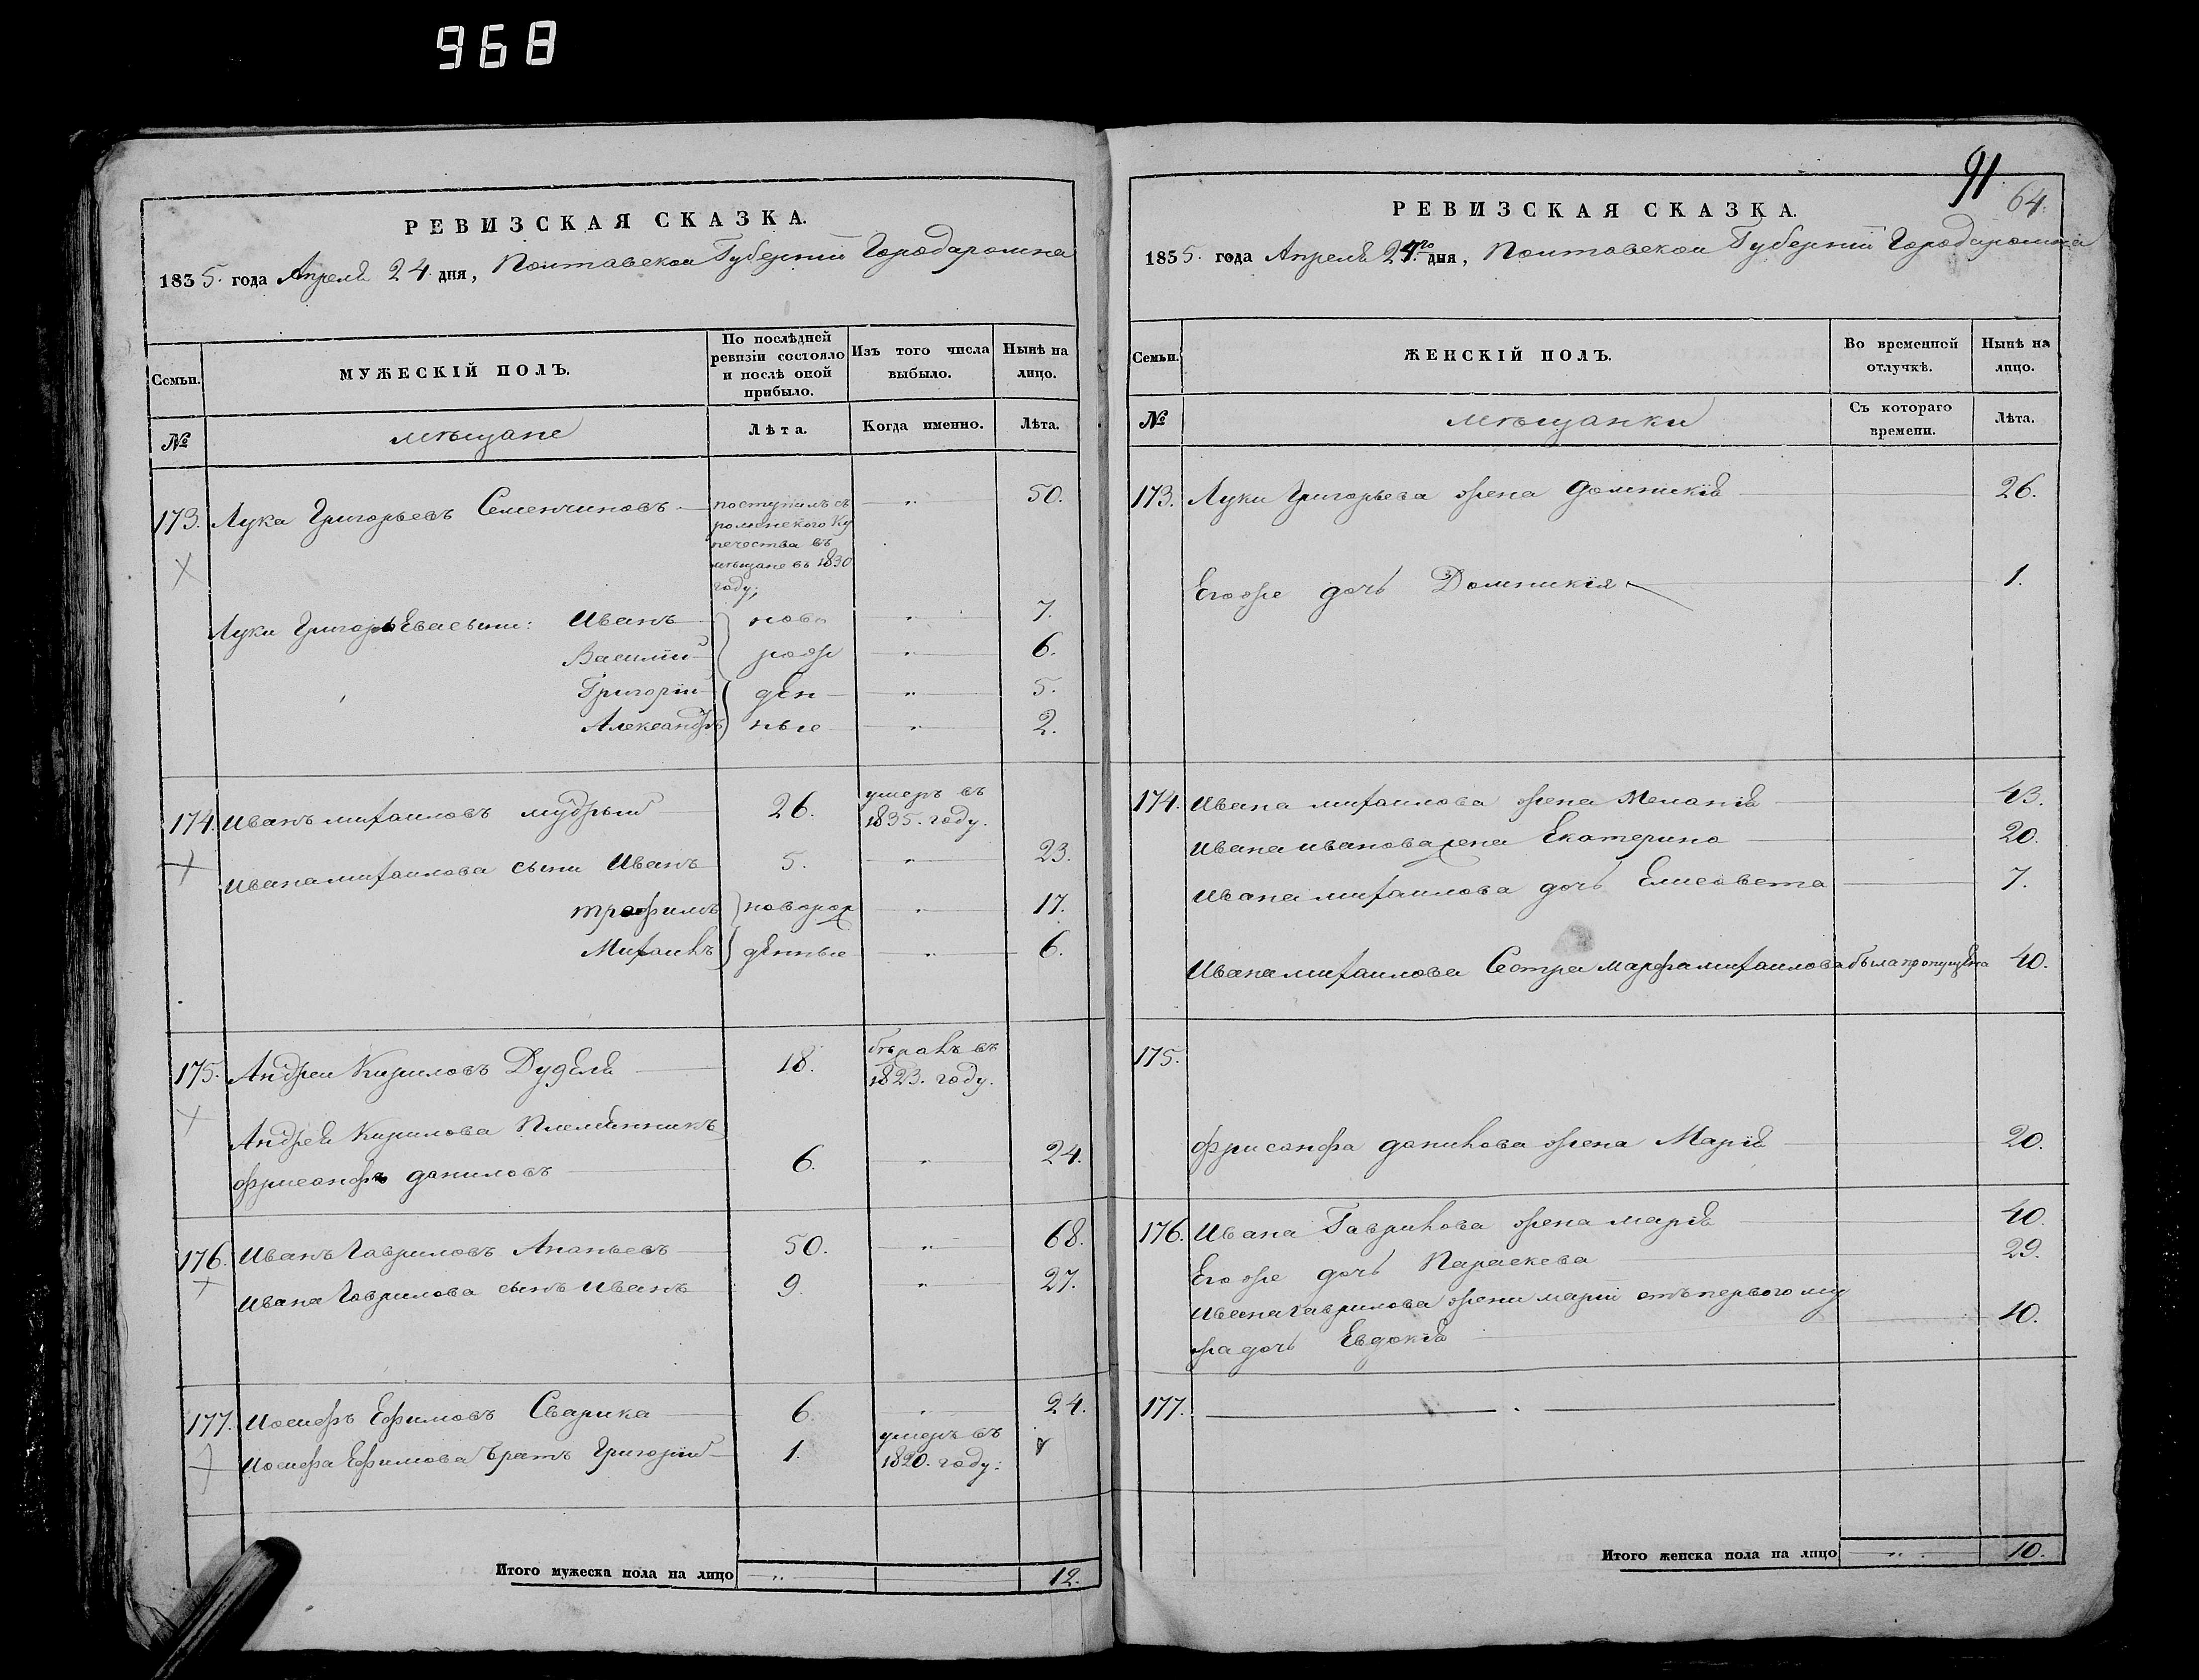 968
РЕВИЗСКАЯ СКАЗКА.
1835. года Апреля 24. дня, Полтавской Губернии Города Ромна
Семьи. МУЖЕСКІЙ ПОЛЪ. По послѣдней ревизіи состояло и послѣ оной прибыло. Изъ того числа выбыло. Нынѣ на лицо.
№ мѣщане Лѣта. Когда именно. Лѣта.
173. Лука Григорьевъ Семенчиновъ поступилъ съ " 50.
роменского Ку
печества въ
мѣщане въ 1830
году;
Луки Григорьева сыны: Иванъ ново " 7.
Василій рож " 6.
Григорій ден " 5.
Александръ ные " 2.
174. Иванъ Михаиловъ мудрый 26. умеръ въ
1835. году.
Ивана михаилова сыны Иванъ 5. " 23.
трофимъ новорож " 17.
Михаилъ денные " 6.
175. Андрей Кириловъ Дудкля 18. бѣжалъ въ
1823. году.
Андрея Кирилова Племянникъ
фрисанфъ даниловъ 6. " 24.
176. Иванъ Гавриловъ Ананьевъ 50. " 68.
Ивана Гаврилова сынъ Иванъ 9. " 27.
177. Иосифъ Ефимовъ Сварика 6. " 24.
Иосифа Ефимова братъ Григорій 1. умеръ въ
1820. году:
Итого мужеска пола на лицо " 12.
91
64.
РЕВИЗСКАЯ СКАЗКА.
1835. года Апреля 24.го дня, Полтавской Губерніи Города Ромна
Семьи. ЖЕНСКІЙ ПОЛЪ. Во временной отлучкѣ. Нынѣ на лицо.
№ мѣщанки Съ котораго времени. Лѣта.
173. Луки Григорьева жена Домникія 26.
Его же дочь Домникія 1.
174. Ивана михаилова жена Меланія 43.
Ивана иванова жена Екатерина 20.
Ивана михаилова дочь Елисавета 7.
Ивана михаилова Сестра Марфа михаилова была пропущена 40.
175.
фрисанфа данилова жена Марія 20.
176. Ивана Гаврилова жена марія 40.
Его же дочь Параскева 29.
Ивана Гаврилова жены маріи отъ первого му
жа дочь Евдокія 10.
177.
Итого женска пола на лицо " 10.